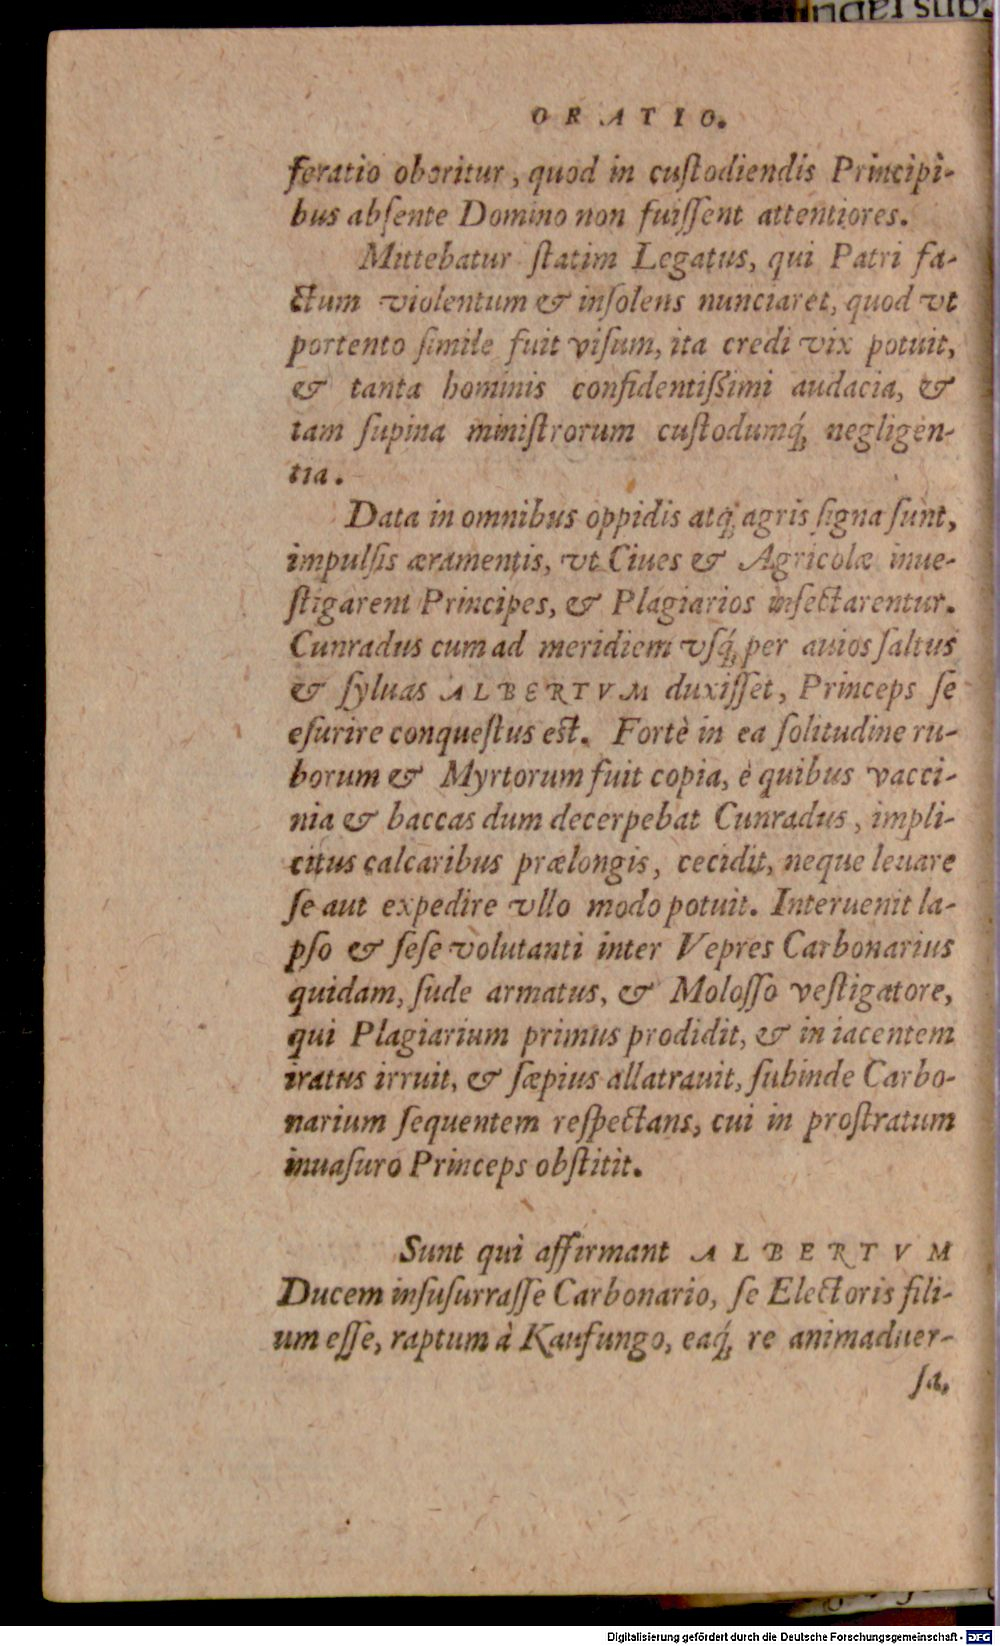 ORATIO.
feratio oboritur, quod in cuſtodiendis Principi-
bus abſente Domino non fuiſſent attentiores.
Mittebatur ſtatim Legatus, qui Patri fa-
ctum violentum & inſolens nunciaret, quod vt
portento ſimile fuit viſum, ita credi vix potuit,
& tanta hominis confidentißimi audacia, &
tam ſupina miniſtrorum cuſtodumq́; negligen-
tia.
Data in omnibus oppidis atq; agris ſigna ſunt,
impulſis æramentis, vt Ciues & Agricolæ inue-
ſtigarent Principes, & Plagiarios inſectarentur.
Cunradus cum ad meridiem vſq́; per auios ſaltus
& ſyluas ALBERTVM duxiſſet, Princeps ſe
eſurire conqueſtus eſt. Fortè in ea ſolitudine ru-
borum & Myrtorum fuit copia, è quibus vacci-
nia & baccas dum decerpebat Cunradus, impli-
citus calcaribus prælongis, cecidit, neque leuare
ſe aut expedire vllo modo potuit. Interuenit la-
pſo & ſeſe volutanti inter Vepres Carbonarius
quidam, ſude armatus, & Moloſſo veſtigatore,
qui Plagiarium primus prodidit, & in iacentem
iratus irruit, & ſæpius allatrauit, ſubinde Carbo-
narium ſequentem reſpectans, cui in proſtratum
inuaſuro Princeps obſtitit.
Sunt qui affirmant ALBERTVM
Ducem inſuſurraſſe Carbonario, ſe Electoris fili-
um eſſe, raptum à Kaufungo, eaq́; re animaduer-
ſa,
Digitalisierung gefördert durch die Deutsche Forschungsgemeinschaft - DFG